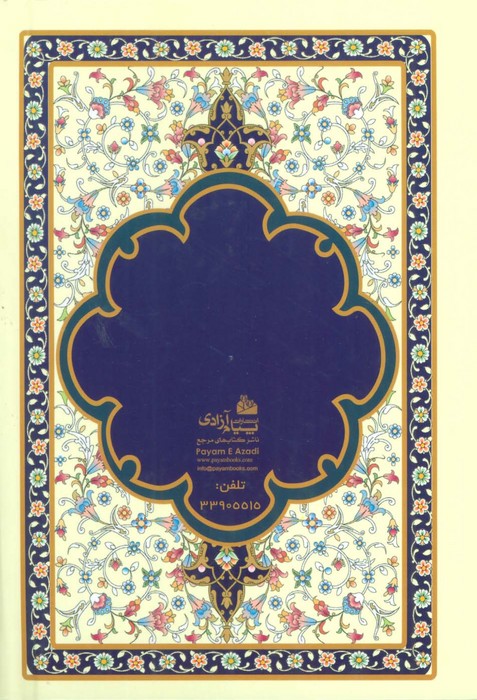 انتشارات
پیام آزادی
ناشر کتاب‌های مرجع
Payam E Azadi
www.payambooks.com
info@payambooks.com
تلفن:
۳۳۹۰۵۵۱۵